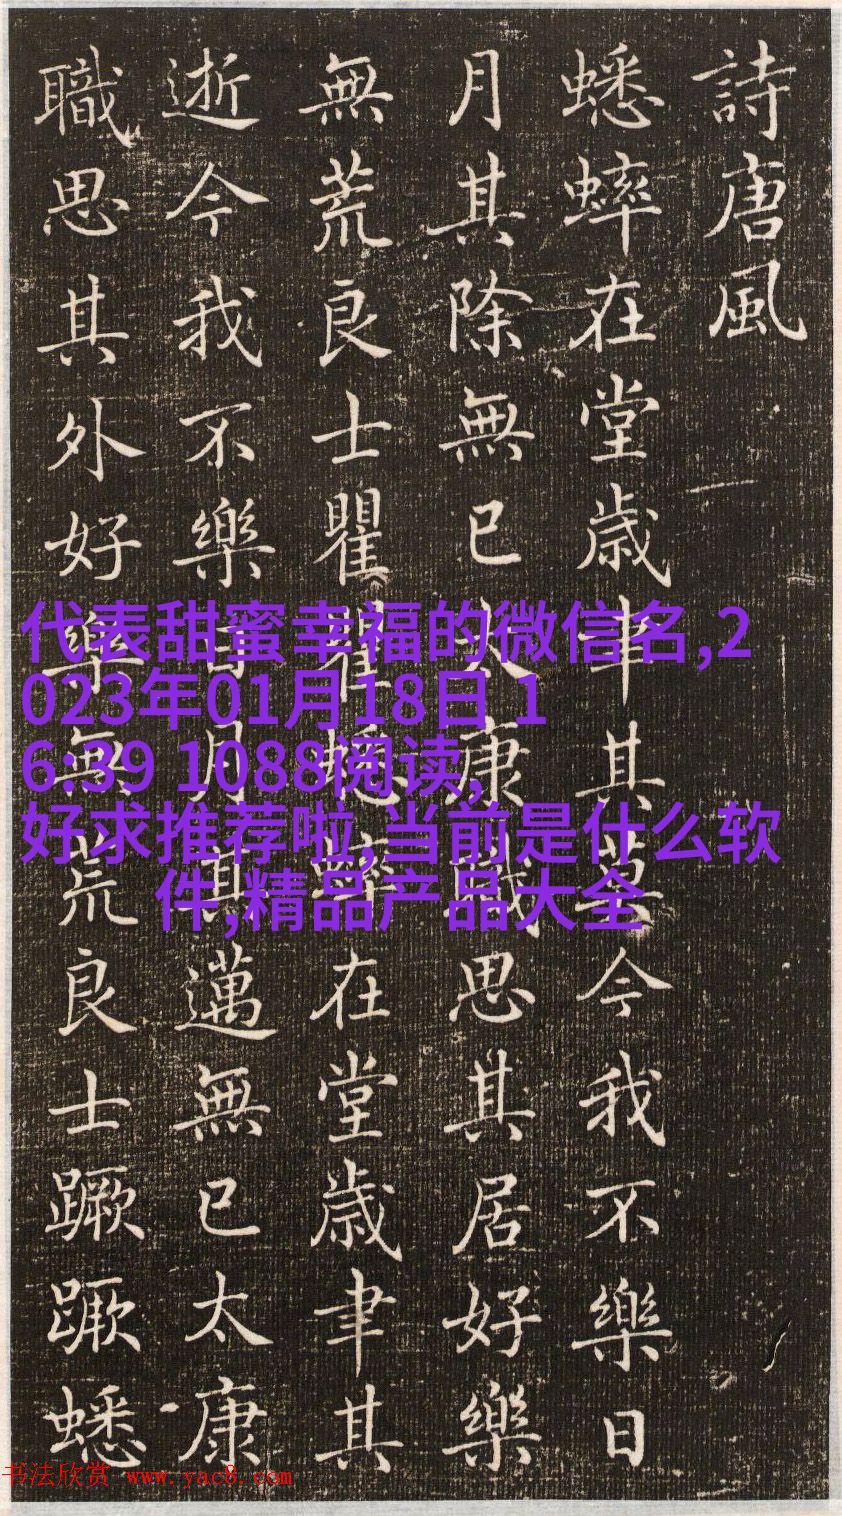 詩唐風
蟋蟀在堂歳聿其莫今我不樂日
月其除無已大康職思其居好樂
無荒良士瞿瞿蟋蟀在堂歳聿其
逝今我不樂日月其邁無已太康
職思其外好樂無荒良士蹶蹶蟋
代表甜蜜幸福的微信名,2
023年01月18日 1
6:39 1088阅读,
好求推荐啦,当前是什么软
件,精品产品大全
书法欣赏 www.yac8.com